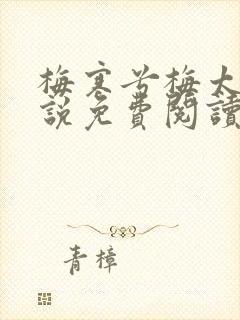 梅寒兮梅大
說免費閱讀
青樟